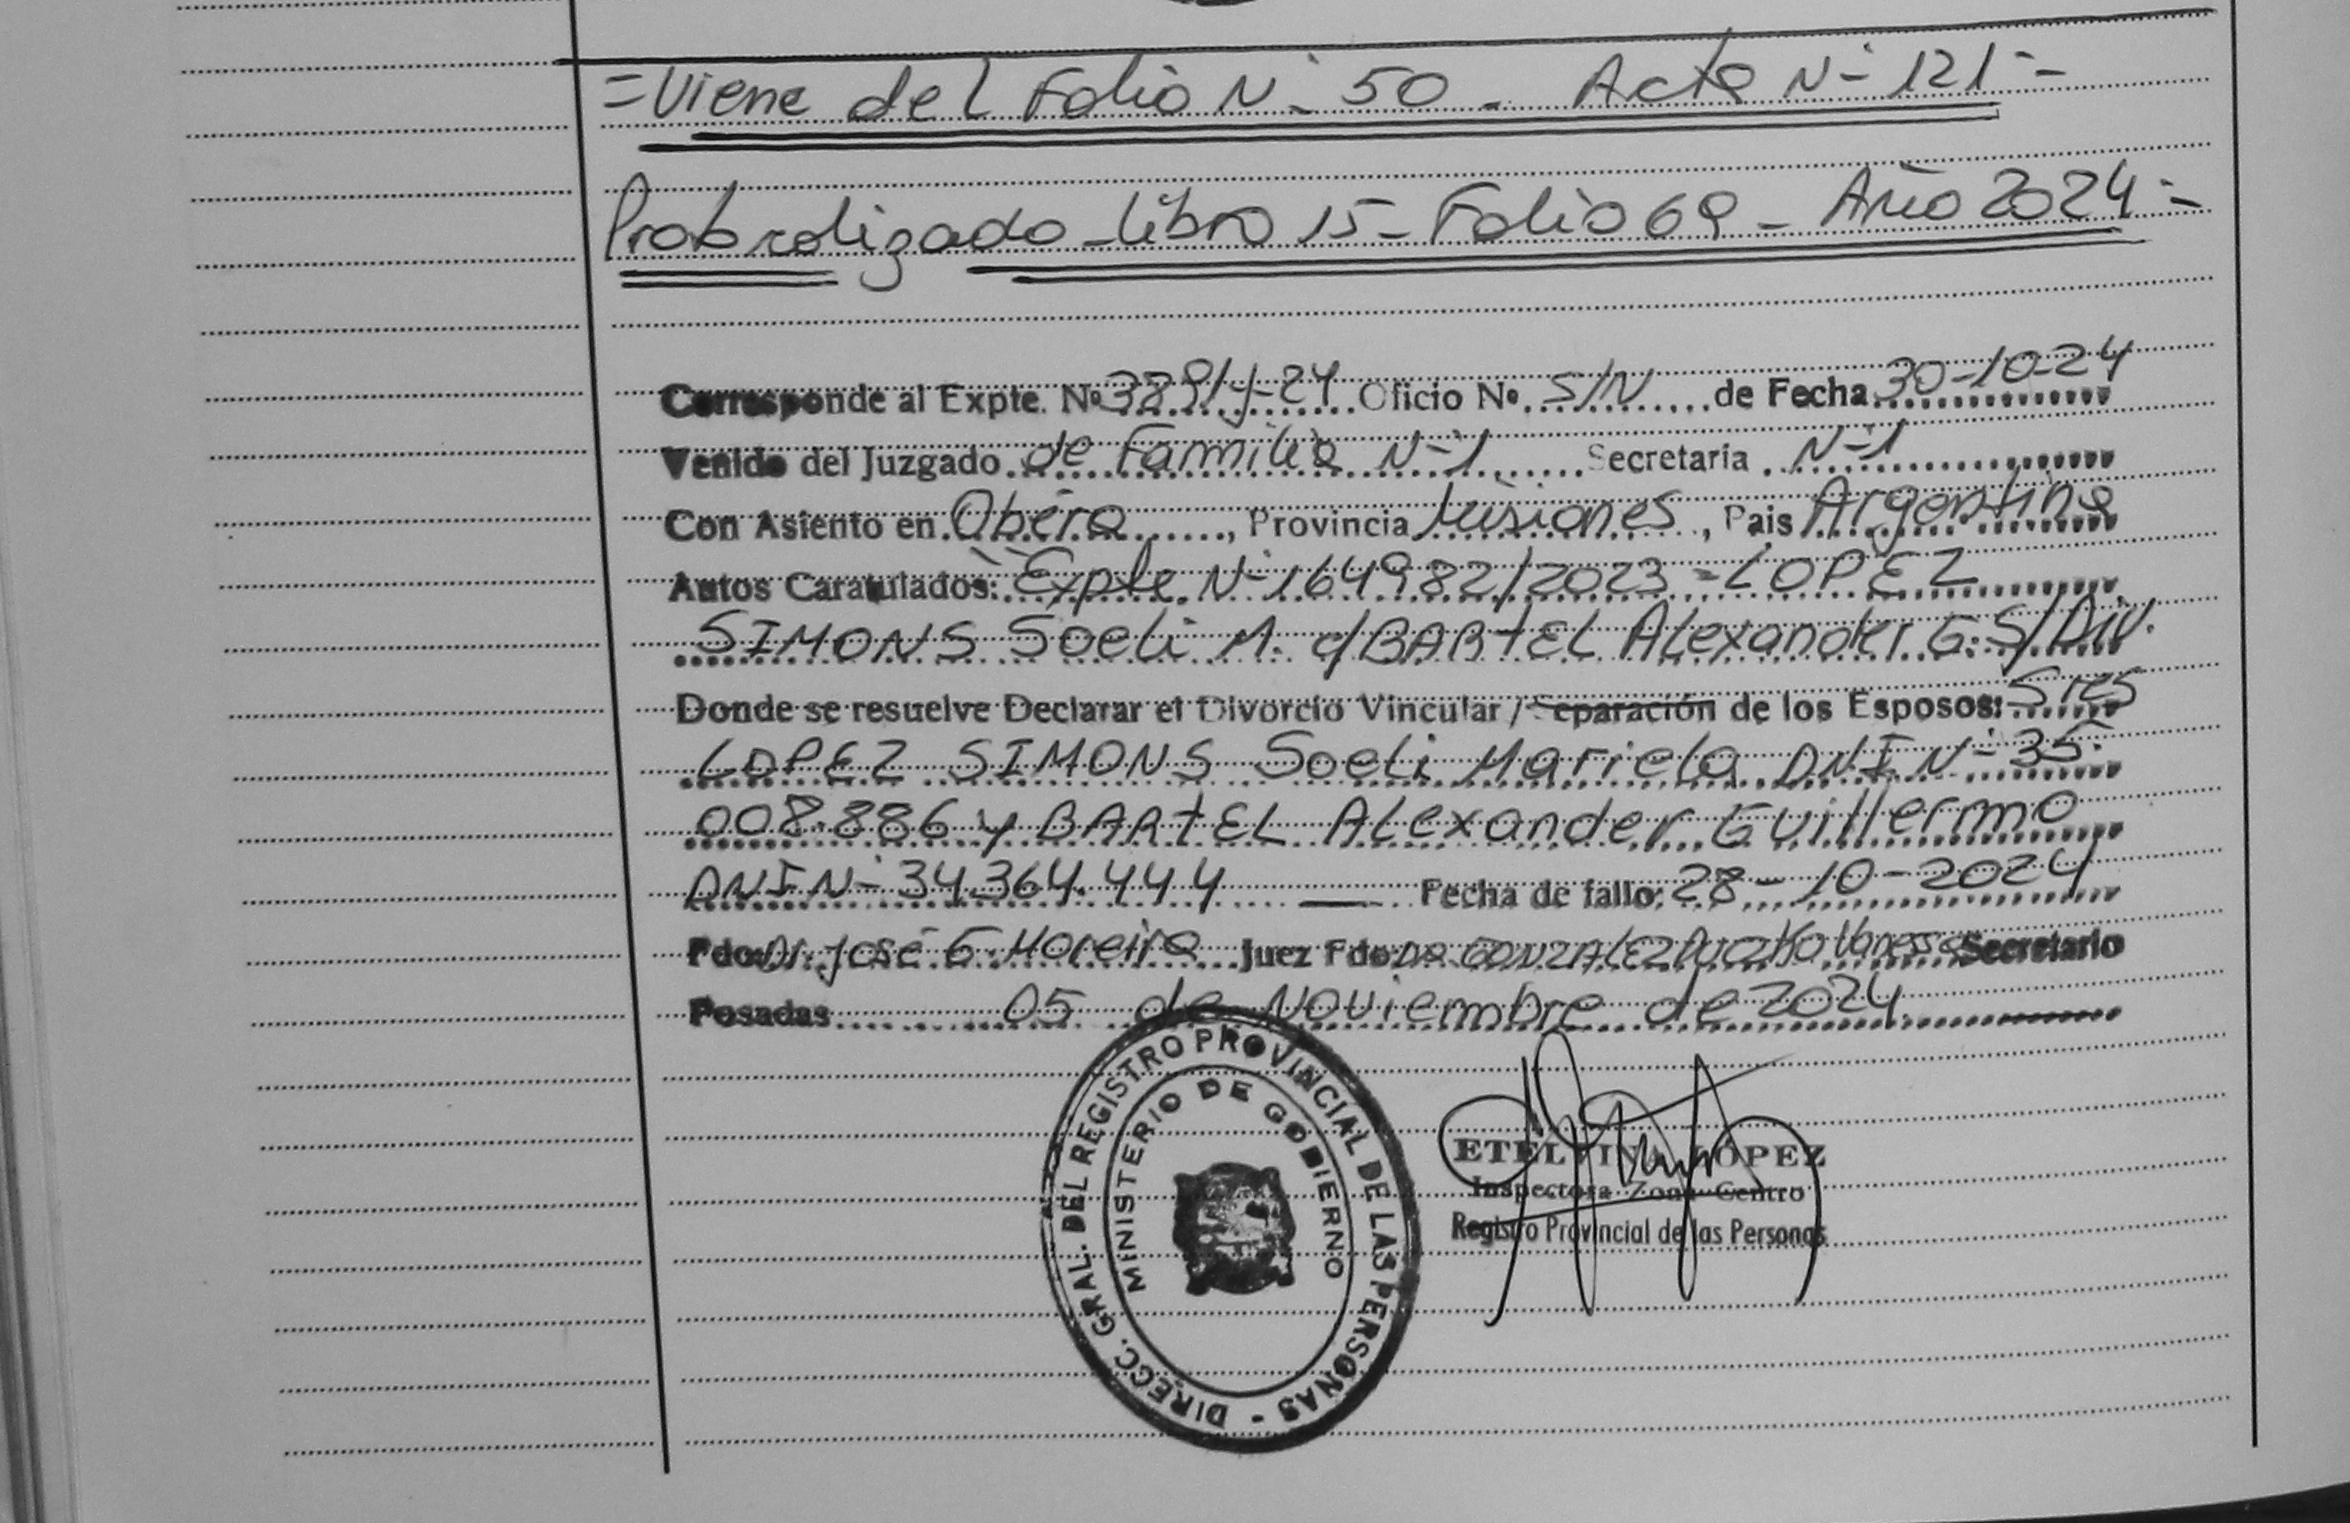 =Viene del Folio N° 50 - Acta N° 121=
Protocolizado - Libro 15 - Folio 69 - Año 2024=
Corresponde al Expte. Nº 3891/y-24 Oficio Nº S/N de Fecha 30-10-24
Venido del Juzgado de Familia N°1 Secretaria N°1
Con Asiento en Oberá, Provincia Misiones, Pais Argentina
Autos Caratulados: Expte. N° 164982/2023 = LOPEZ
SIMONS Soeli M. c/ BARTEL Alexander G. S/Div.
Donde se resuelve Declarar el Divorcio Vincular / Separación de los Esposos: Sres
LOPEZ SIMONS Soeli Mariela DNI N° 35.
008.886 y BARTEL Alexander Guillermo
DNI N° 34.364.444 — Fecha de fallo: 28-10-2024
Fdo: Dr. José G. Moreira Juez Fdo: Dra GONZALEZ Vanessa Secretario
Posadas 05 de Noviembre de 2024.
DIRECC. GRAL. DEL REGISTRO PROVINCIAL DE LAS PERSONAS -
MINISTERIO DE GOBIERNO
ETELVINA LÓPEZ
Inspectora Zona Centro
Registro Provincial de las Personas